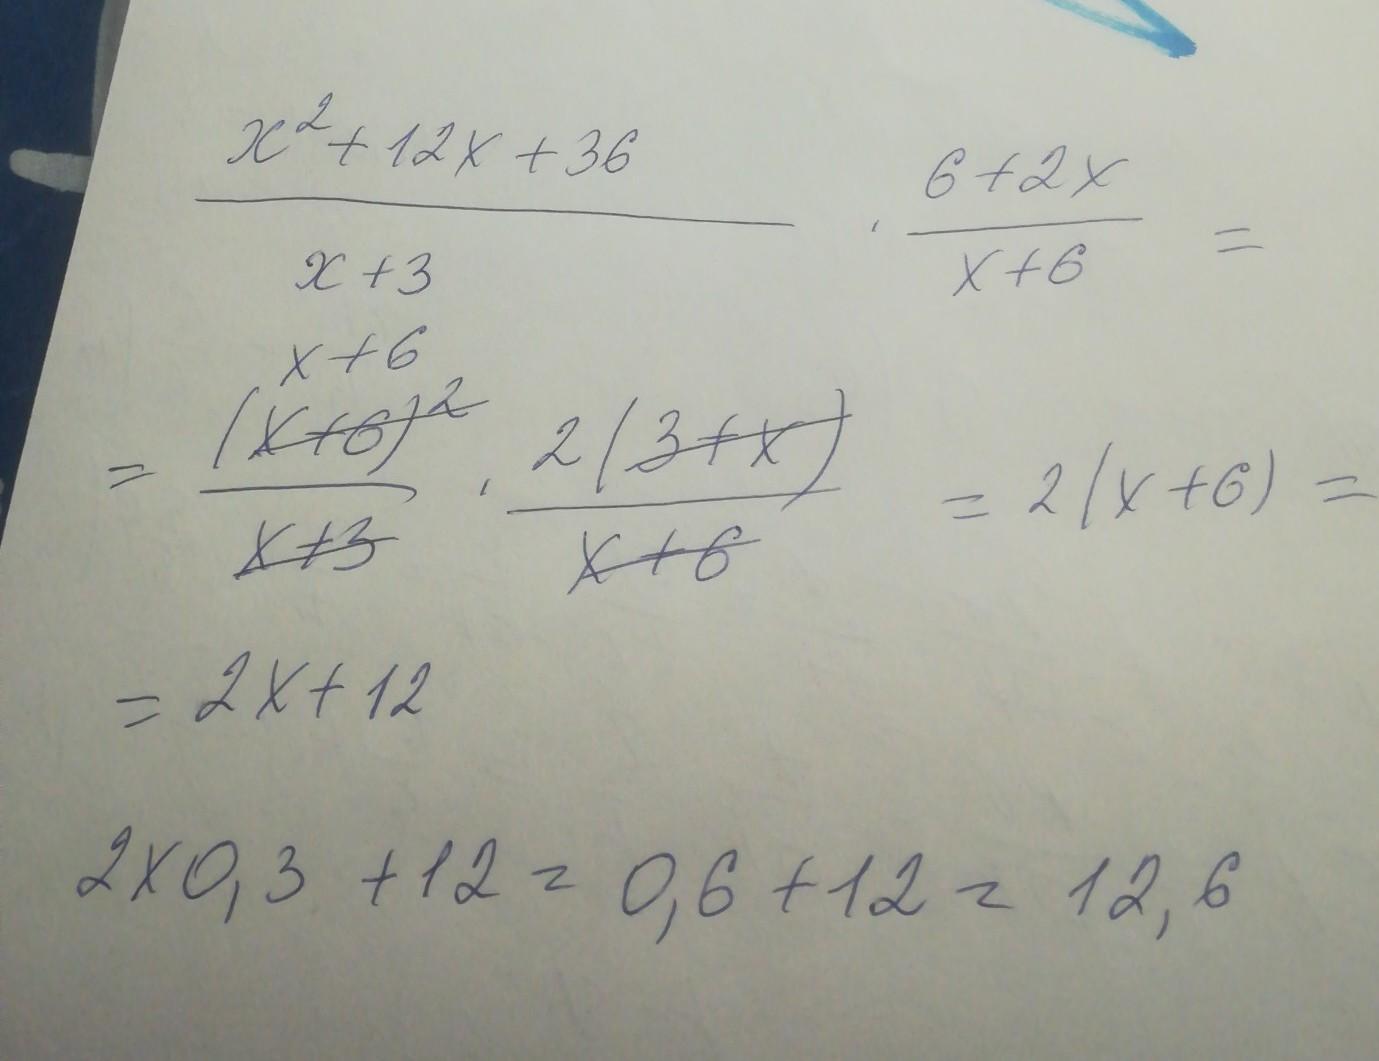 x²+12x+36 / x+3 · 6+2x / x+6 =
x+6
= (x+6)² / x+3 · 2(3+x) / x+6 = 2(x+6) =
= 2x+12
2x0,3 +12= 0,6+12= 12,6